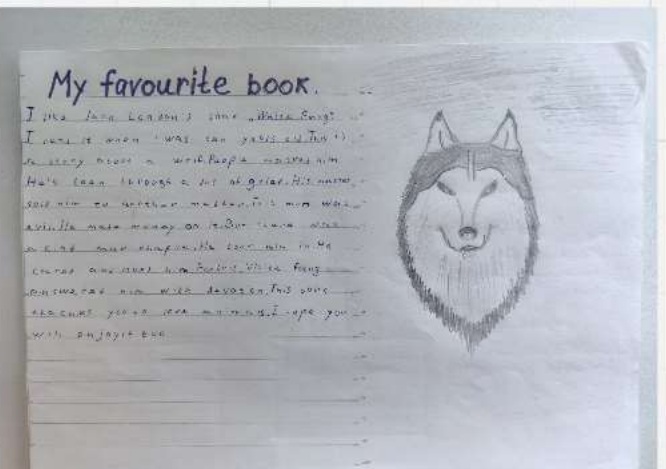 My favourite book.
I like Jack London's book „White Fang"
I read it when I was ten years old. This is
a story about a wolf. People
He's been through a lot of grief. His master
sold him to another master. This man was
evil. He made money on it. But there was
a kind man He took him in. He
cared and White Fang
answered him with This book
teaches you to love animals. I hope you
will enjoy it too